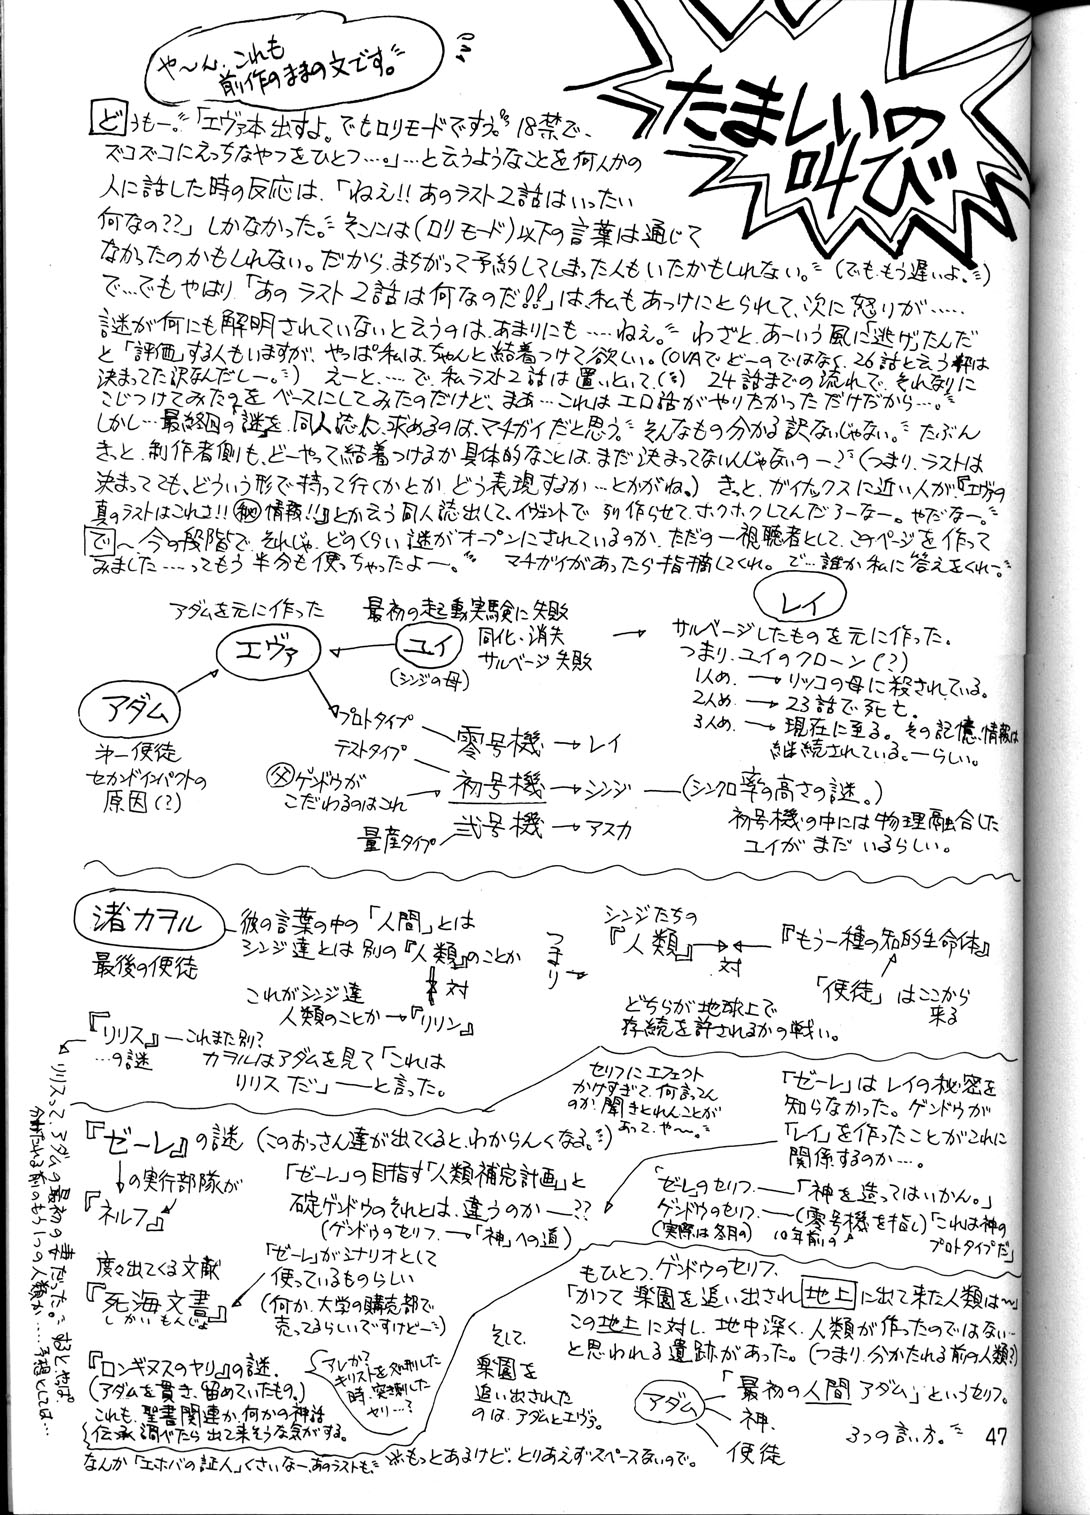 たましいの
叫び
や〜ん、これも
前作のままの文です。
どうもー。「エヴァ本出すよ。でもロリモードですぅ。18禁で、
ズコズコにえっちなやつをひとつ…。」…と云うようなことを何人かの
人に話した時の反応は、「ねえ!!あのラスト2話はいったい
何なの??」しかなかった。そこには(ロリモード)以下の言葉は通じて
なかったのかもしれない。だから、まちがって予約してしまった人もいたかもしれない。(でも、もう遅いよ、)
で…でもやはり「あのラスト2話は何なのだ!!」は、私もあっけにとられて、次に怒りが……
謎が何にも解明されていないと云うのは、あまりにも……ねぇ。わざと、あーいう風に「逃げ」たんだ
と「評価」する人もいますが、やっぱ私は、ちゃんと結着つけて欲しい。(OVAでどーのではなく、26話と云う枠は
決まってた訳なんだしー。)えーと、…で、私ラスト2話は置いといて、24話までの流れで、それなりに
こじつけてみたのをベースにしてみたのだけど、まぁ…これはエロ話がやりたかっただけだから…。
しかし…最終回の「謎」を、同人誌に求めるのは、マチガイだと思う。そんなもの分かる訳ないじゃない。たぶん
きっと、制作者側も、どーやって結着つけるか具体的なことは、まだ決まってないんじゃないのー?(つまり、ラストは
決まってても、どういう形で持って行くかとか、どう表現するか…とかがね。)きっと、ガイナックスに近い人が『エヴァの
真のラストはこれさ!!㊙情報!!』とか云う同人誌出して、イヴェントで列作らせて、ホクホクしてんだろーなー。やだなー。
で〜、今の段階で、それじゃ、どのくらい謎がオープンにされているのか、ただの一視聴者として、このページを作って
みました……ってもう半分も使っちゃったよー。マチガイがあったら指摘してくれ。で…誰か私に答えをくれー。
アダムを元に作った
エヴァ
最初の起動実験に失敗
ユイ
(シンジの母)
同化、消失
サルベージ失敗
レイ
サルベージしたものを元に作った。
つまり、ユイのクローン(?)
1人め、→リツコの母に殺されている。
2人め、→23話で死亡。
3人め、→現在に至る。その記憶、情報は
継続されている。―らしい。
アダム
第一使徒
セカンドインパクトの
原因(?)
プロトタイプ
零号機→レイ
テストタイプ
初号機→シンジ―(シンクロ率の高さの謎。)
父ゲンドウが
こだわるのはこれ
初号機の中には物理融合した
ユイがまだいるらしい。
量産タイプ
弐号機→アスカ
渚カヲル
最後の使徒
彼の言葉の中の「人間」とは
シンジ達とは別の『人類』のことか
対
これがシンジ達
人類のことか→『リリン』
つまり
シンジたちの
『人類』
対
『もう一種の知的生命体』
「使徒」はここから
来る
どちらが地球上で
存続を許されるかの戦い。
『リリス』―これまた別?
…の謎
カヲルはアダムを見て「これは
リリスだ」――と言った。
リリスって、アダムの最初の妻だった。するとやっぱ、
分かたれる前のもう1つの人類か……予想としては…
『ゼーレ』の謎(このおっさん達が出てくると、わからんくなる。)
の実行部隊が
『ネルフ』
セリフにエフェクト
かけすぎて、何言ってん
のか、聞きとれんことが
あって、や〜。
「ゼーレ」はレイの秘密を
知らなかった。ゲンドウが
「レイ」を作ったことがこれに
関係するのか…。
「ゼーレ」の目指す「人類補完計画」と
碇ゲンドウのそれとは、違うのか―??
(ゲンドウのセリフ、―「神」への道)
「ゼーレ」のセリフ、――「神を造ってはいかん。」
ゲンドウのセリフ、――(零号機を指し)「これは神の
プロトタイプだ」
(実際は冬月の)
10年前の
度々出てくる文献
『死海文書』
しかいもんじょ
「ゼーレ」がシナリオとして
使っているものらしい
(何か、大学の購売部で
売ってるらしいですけどー)
もひとつ、ゲンドウのセリフ、
「かつて楽園を追い出され地上に出て来た人類は〜」
この地上に対し、地中深く、人類が作ったのではない…
と思われる遺跡があった。(つまり、分かたれる前の人類?)
『ロンギヌスのヤリ』の謎、
(アダムを貫き、留めていたもの。)
これも、聖書関連か、何かの神話
伝承調べたら出て来そうな気がする。
アレか?
キリストを処刑した
時、突き刺した
ヤリ…?
そして、
楽園を
追い出された
のは、アダムとエヴァ。
アダム
「最初の人間アダム」というセリフ。
神
使徒
3つの言い方。
なんか「エホバの証人」くさいなー、あのラストも、
※もっとあるけど、とりあえずスペースないので。
47